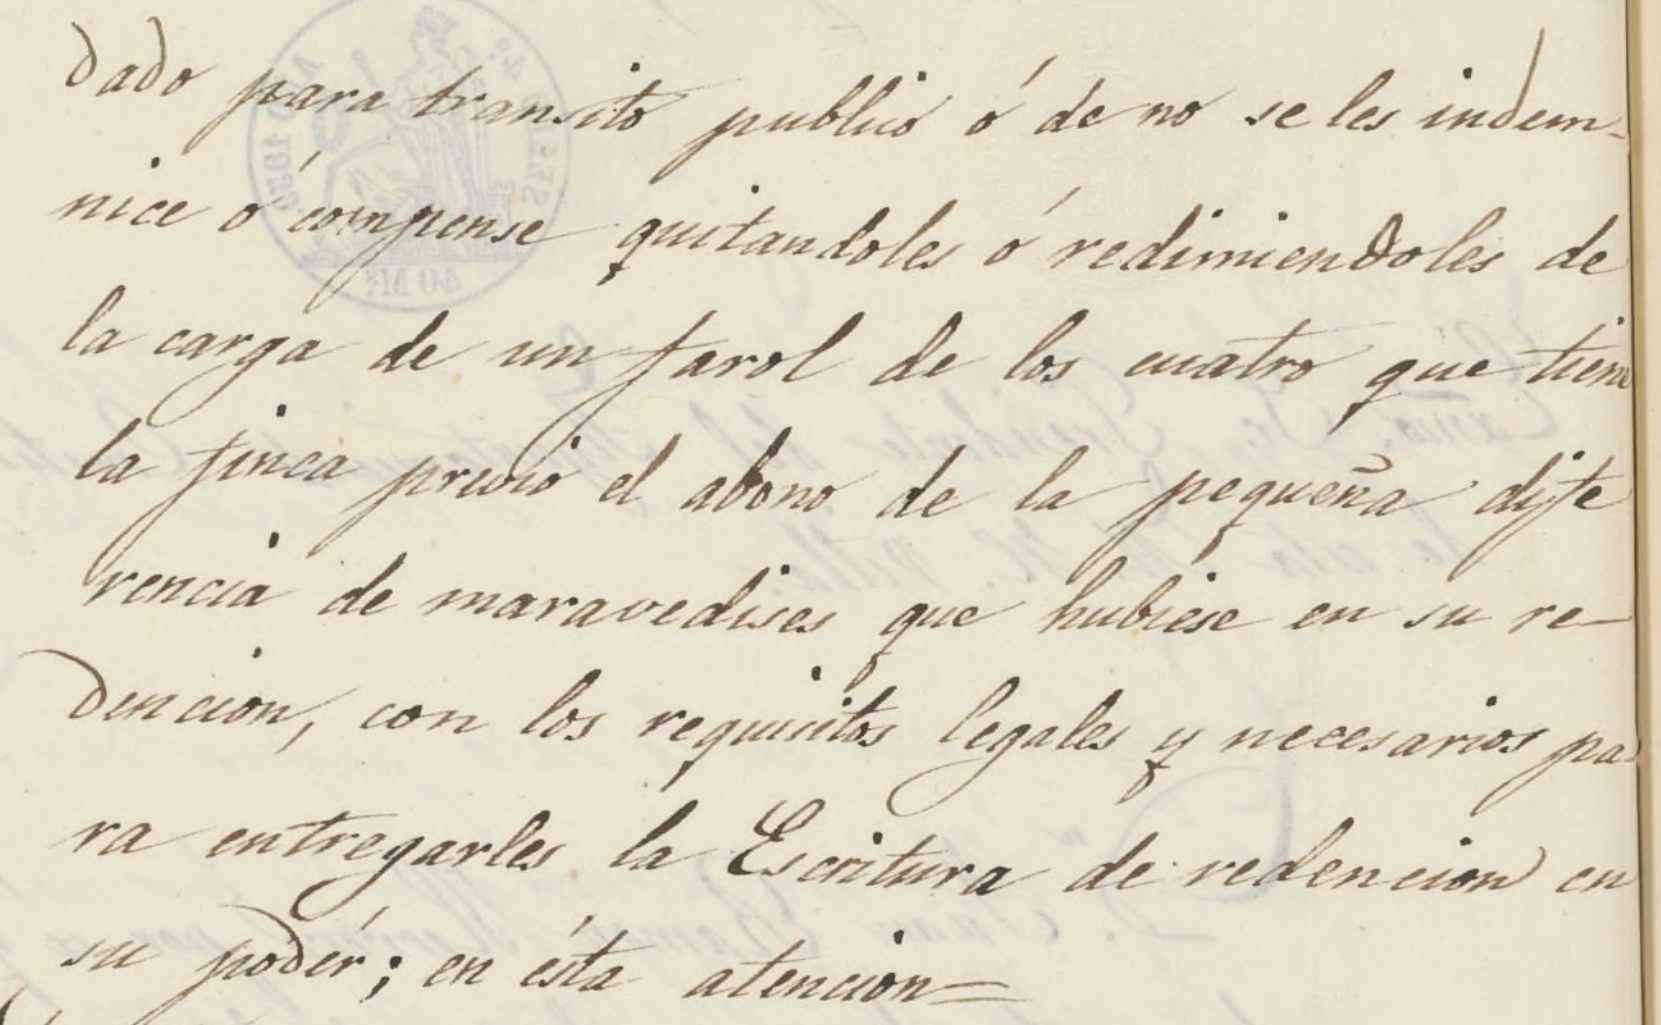 dado para transito publico ó de no se les indem-
nice ó compense quitandoles ó redimiendoles de
la carga de un farol de los cuatro que tiene
la finca previo el abono de la pequeña dife
rencia de maravedises que hubiese en su re-
dencion, con los requisitos legales y necesarios pa-
ra entregarles la Escritura de redencion en
su podér; en ésta atencion=